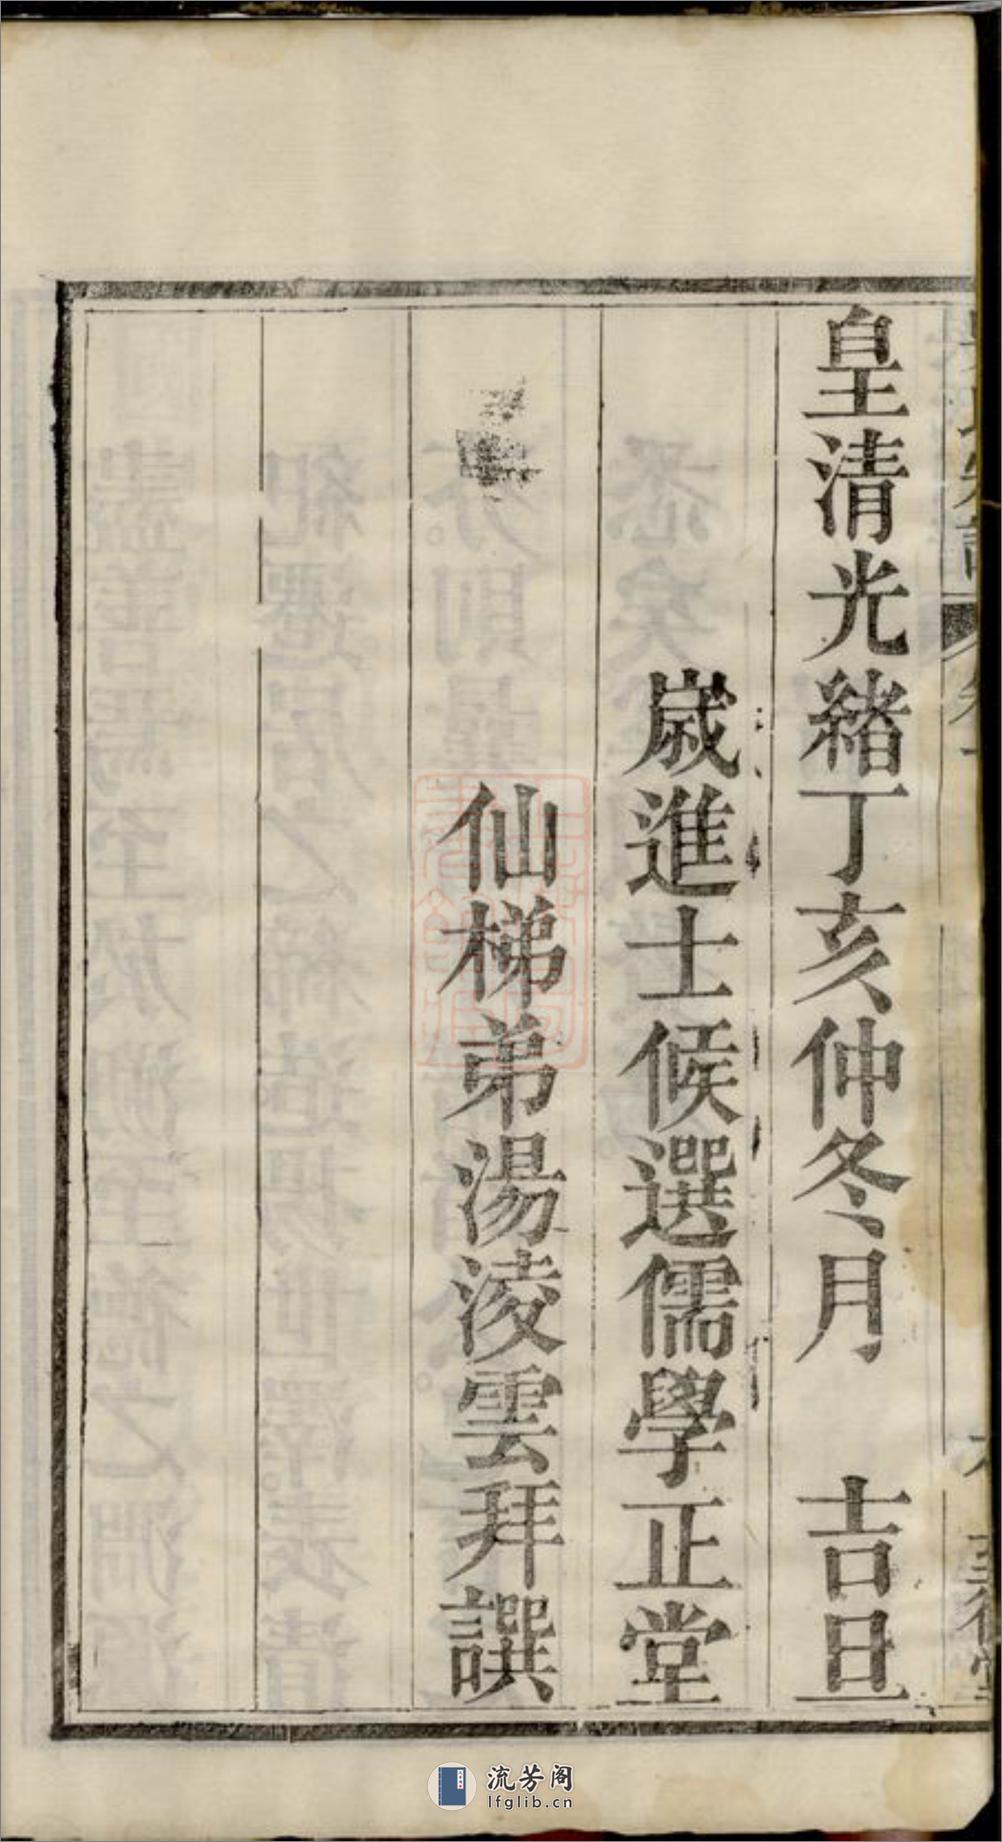 皇清光緒丁亥仲冬月　吉旦
歲進士候選儒學正堂
仙梯弟湯淩雲拜譔
流芳阁
lfglib.cn